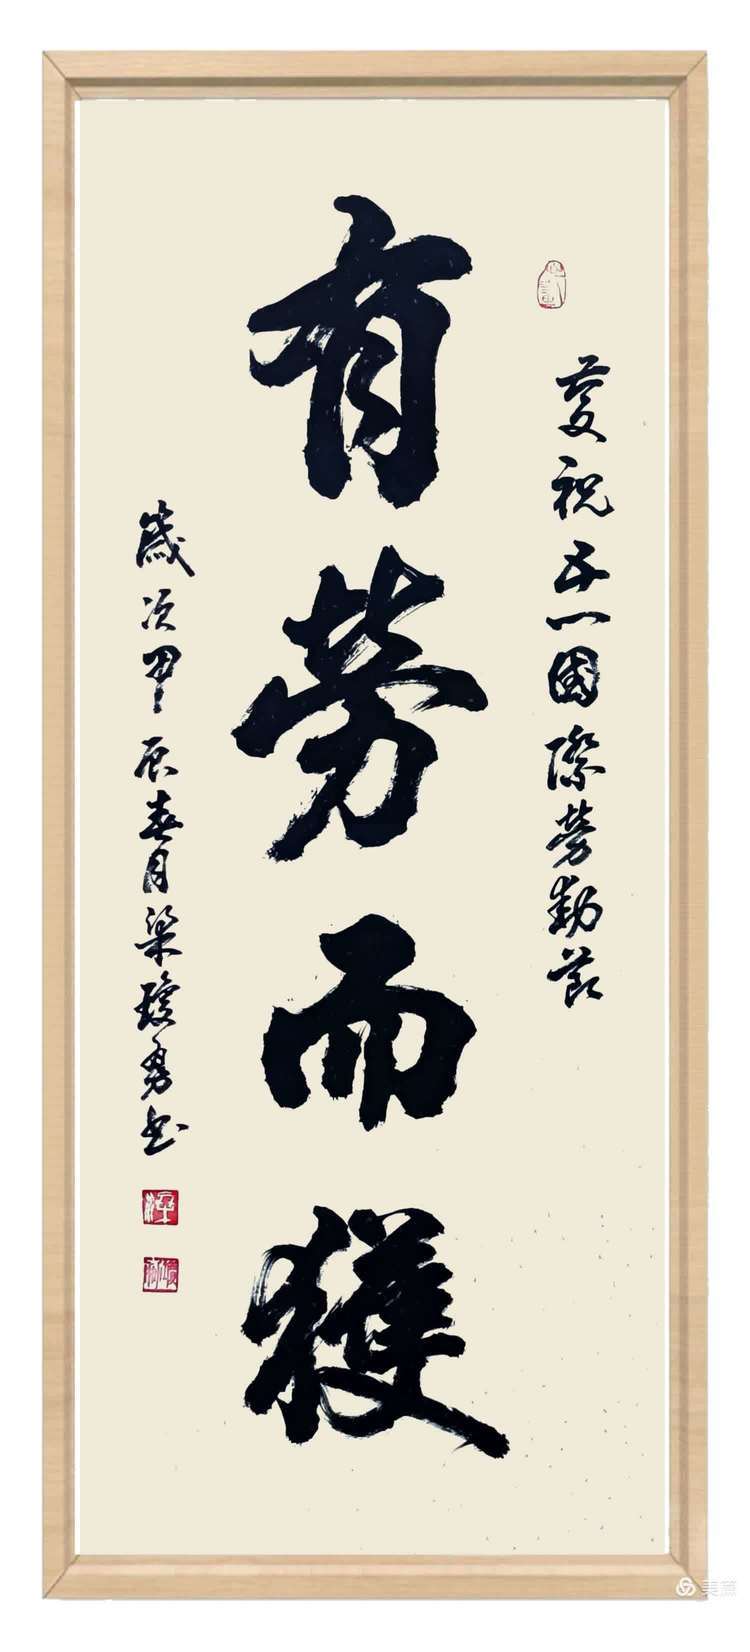 慶祝五一國際勞動節
有勞而獲
歲次甲辰春月梁瓊勇书
美篇